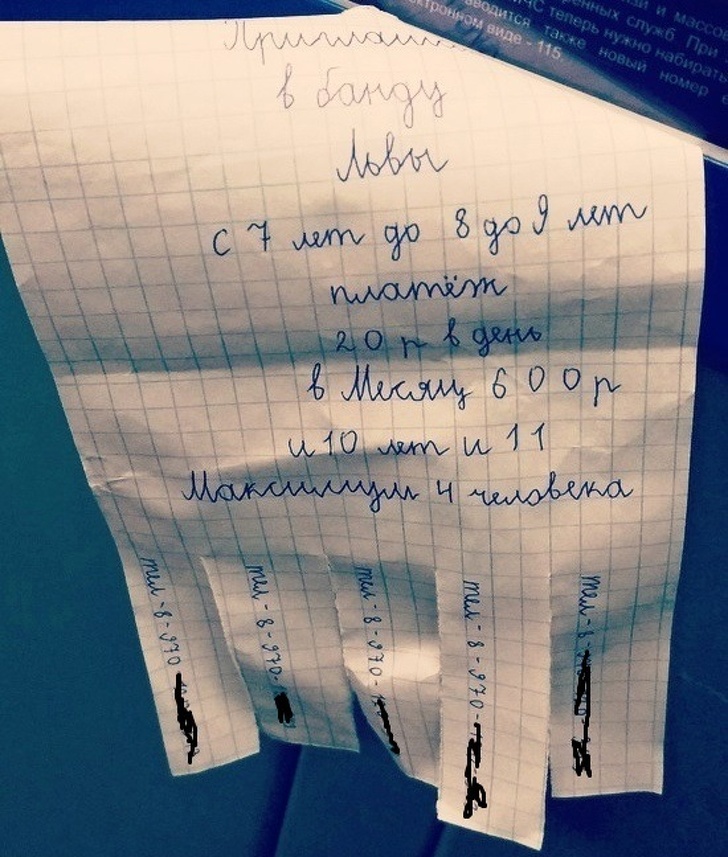 зи и массо
енных служб. При
ЧС теперь нужно набират
вводится также новый номер
ектронном виде - 115.
Приглаш
в банду
Львы
с 7 лет до 8 до 9 лет
платёж
20 р в день
в Месяц 600р
и 10 лет и 11
Максимум 4 человека
тел-8-970
тел-8-970-
тел-8-970-
тел-8-970-
тел-8-